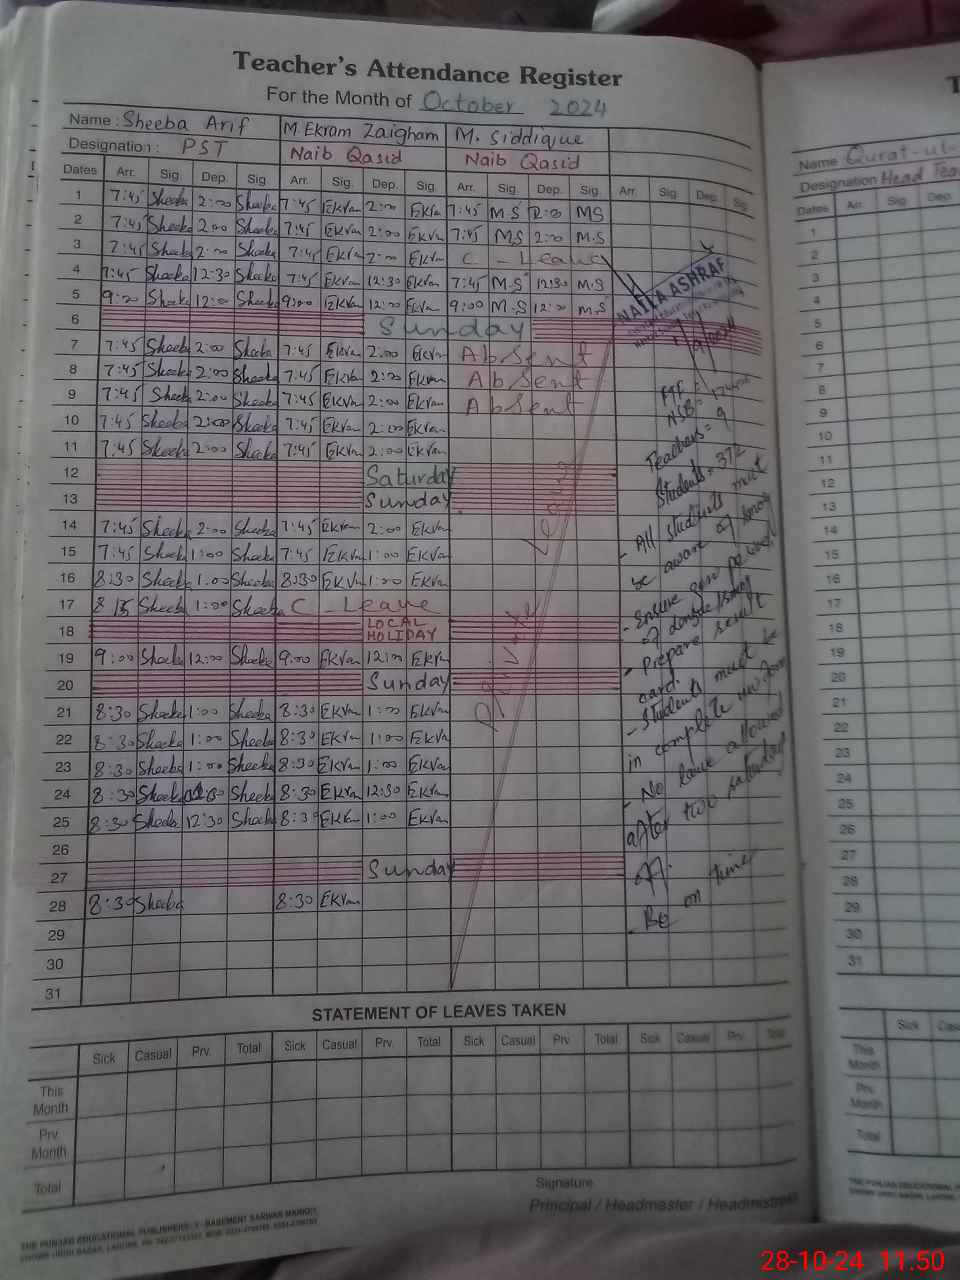 Teacher's Attendance Register
For the Month of October 2024
Name : Sheeba Arif M. Ekram Zaigham M. Siddique
Designation : PST Naib Qasid Naib Qasid
Dates Arr. Sig. Dep. Sig. Arr. Sig. Dep. Sig. Arr. Sig. Dep. Sig. Arr. Sig. Dep. Sig.
1 7:45 Sheeba 2:00 Sheeba 7:45 Ekram 2:00 Ekram 7:45 M.S 2:00 MS
2 7:45 Sheeba 2:00 Sheeba 7:45 Ekram 2:00 Ekram 7:45 M.S 2:00 M.S
3 7:45 Sheeba 2:00 Sheeba 7:45 Ekram 2:00 Ekram C - Leave
4 7:45 Sheeba 12:30 Sheeba 7:45 Ekram 12:30 Ekram 7:45 M.S 12:30 M.S
5 9:00 Sheeba 12:00 Sheeba 9:00 Ekram 12:00 Ekram 9:00 M.S 12:00 M.S
6 Sunday
7 7:45 Sheeba 2:00 Sheeba 7:45 Ekram 2:00 Ekram Absent
8 7:45 Sheeba 2:00 Sheeba 7:45 Ekram 2:00 Ekram Absent
9 7:45 Sheeba 2:00 Sheeba 7:45 Ekram 2:00 Ekram Absent
10 7:45 Sheeba 2:00 Sheeba 7:45 Ekram 2:00 Ekram
11 7:45 Sheeba 2:00 Sheeba 7:45 Ekram 2:00 Ekram
12 Saturday
13 Sunday
14 7:45 Sheeba 2:00 Sheeba 7:45 Ekram 2:00 Ekram
15 7:45 Sheeba 1:00 Sheeba 7:45 Ekram 1:00 Ekram
16 8:30 Sheeba 1:00 Sheeba 8:30 Ekram 1:00 Ekram
17 8 15 Sheeba 1:00 Sheeba C - Leave
18 LOCAL HOLIDAY
19 9:00 Sheeba 12:00 Sheeba 9:00 Ekram 12:00 Ekram
20 Sunday
21 8:30 Sheeba 1:00 Sheeba 8:30 Ekram 1:00 Ekram
22 8:30 Sheeba 1:00 Sheeba 8:30 Ekram 1:00 Ekram
23 8:30 Sheeba 1:00 Sheeba 8:30 Ekram 1:00 Ekram
24 8:30 Sheeba Sheeba 8:30 Ekram 12:30 Ekram
25 8:30 Sheeba 12:30 Sheeba 8:30 Ekram 1:00 Ekram
26
27 Sunday
28 8:30 Sheeba 8:30 Ekram
29
30
31
Private Leave
NAILA ASHRAF
NSB =
Teachers = 9
Students = 372
- All students must
be aware of smog
- Ensure
of dengue/smog
- Prepare result
card.
- Students must be
in complete uniform
- No leave allowed
after two saturday
off.
- Be on time
STATEMENT OF LEAVES TAKEN
Sick Casual Prv. Total Sick Casual Prv. Total Sick Casual Prv. Total Sick Casual Prv. Total
This Month
Prv. Month
Total
Signature
Principal / Headmaster / Headmistress
THE PUNJAB EDUCATIONAL PUBLISHERS:
Name Qurat-ul-
Designation Head Tea
Dates Arr. Sig. Dep.
1
2
3
4
5
6
7
8
9
10
11
12
13
14
15
16
17
18
19
20
21
22
23
24
25
26
27
28
29
30
31
Sick Cas
This Month
Prv. Month
Total
28-10-24 11.50